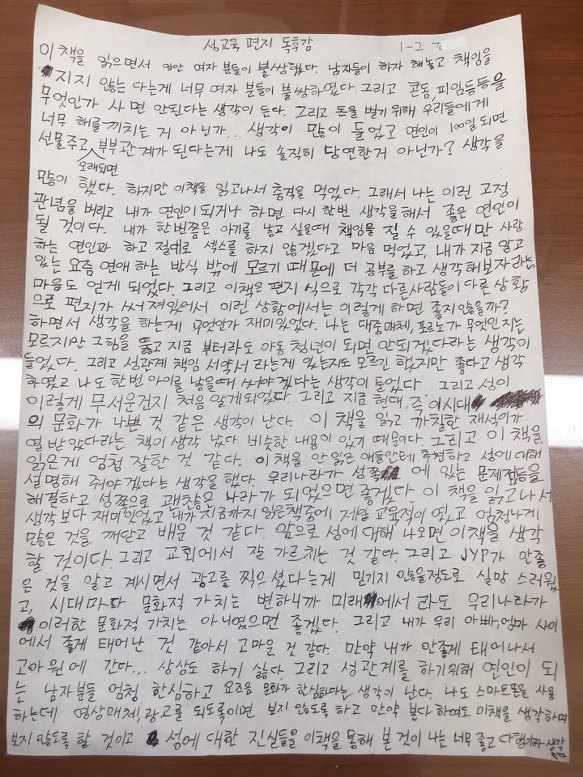 성교육 편지 독후감 1-2
이 책을 읽으면서 일단 여자 분들이 불쌍했다. 남자들이 하자 해놓고 책임을
지지 않는 다는게 너무 여자 분들이 불쌍하였다. 그리고 콘돔, 피임등등을
무엇인가 사면 안된다는 생각이 든다. 그리고 돈을 벌기 위해 우리들에게
너무 해를 끼치는 거 아닌가... 생각이 많이 들었고 연인이 100일 되면
선물주고 오래되면 부부관계가 된다는게 나도 솔직히 당연한거 아닌가? 생각을
많이 했다. 하지만 이책을 읽고나서 충격을 먹었다. 그래서 나는 이런 고정
관념을 버리고 내가 연인이 되거나 하면 다시 한번 생각을 해서 좋은 연인이
될 것이다. 내가 한번쯤은 아기를 낳고 싶을때 책임을 질 수 있을때만 사랑
하는 연인과 하고 절대로 섹스를 하지 않겠다고 마음 먹었고, 내가 지금 알고
있는 요즘 연애 하는 방식 밖에 모르기 때문에 더 공부를 하고 생각해보자 라는
마음도 얻게 되었다. 그리고 이책은 편지 식으로 각각 다른사람들이 다른 상황
으로 편지가 써져있어서 이런 상황에서는 이렇게 하면 좋지않을까?
하면서 생각을 하는게 무엇인가 재미있었다. 나는 대중매체, 포르노가 무엇인지는
모르지만 그 힘을 뚫고 지금 부터라도 야동 청년이 되면 안되겠다라는 생각이
들었다. 그리고 성관계 책임 서약서 라는게 있는지도 모르긴 했지만 좋다고 생각
하였고 나도 한번 아이를 낳을때 써야겠다는 생각이 들었다. 그리고 성이
이렇게 무서운건지 처음 알게되었다. 그리고 지금 현대, 즉 이시대
의 문화가 나쁜 것 같은 생각이 난다. 이 책을 읽고 까칠한 재석이가
열 받았다라는 책이 생각 났다 비슷한 내용이 있기 때문이다. 그리고 이 책을
읽은게 엄청 잘한 것 같다. 이 책을 안 읽은 애들한테 추천하고 성에 대해
설명해 줘야겠다는 생각을 했다. 우리나라가 성쪽에 있는 문제점들을
해결하고 성쪽으로 괜찮은 나라가 되었으면 좋겠다. 이 책을 읽고나서
생각보다 재미있었고 내가 지금까지 읽은책중에 제일 교육적이 였고 엄청나게
많은 것을 깨닫고 배운 것 같다. 앞으로 성에 대해 나오면 이책을 생각
할 것이다. 그리고 교회에서 잘 가르치는 것 같다. 그리고 JYP가 안좋
은 것을 알고 계시면서 광고를 찍으셨다는게 믿기지 않을정도로 실망 스러웠
고, 시대마다 문화적 가치는 변하니까 미래에서 라도 우리나라가
이러한 문화적 가치는 아니였으면 좋겠다. 그리고 내가 우리 아빠,엄마 사이
에서 좋게 태어난 것 같아서 고마운 것 같다. 만약 내가 안좋게 태어나서
고아원에 간다... 상상도 하기 싫다. 그리고 성관계를 하기위해 연인이 되
는 남자분들 엄청 한심하고 요즈음 문화가 한심하다는 생각이 난다. 나도 스마트폰을 사용
하는데 영상매체, 광고를 되도록이면 보지 않도록 하고 만약 본다 하여도 이책을 생각하며
보지 않도록 할 것이고 성에 대한 진실들을 이책을 통해 본 것이 나는 너무 좋고 다행이라 생각
한다